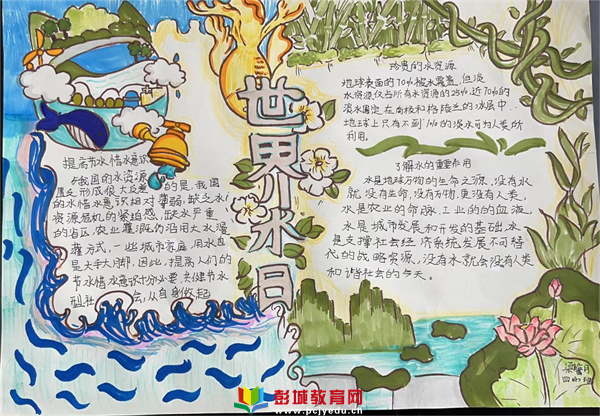 世界水日
提高节水惜水意识
与我国的水资源
匮乏形成很大反差的是,我国
的水惜水意识相对薄弱,缺乏水
资源危机的紧迫感,缺水严重
的省区,农业灌溉仍沿用大水漫
灌方式,一些城市家庭用水也
是大手大脚,因此,提高人们的
节水惜水意识十分必要,共建节水
型社会,从自身做起
珍贵的水资源
地球表面的70%被水覆盖,但淡
水资源仅占所有水资源的2.5%,近70%的
淡水固定在南极和格陵兰的冰层中,
地球上只有不到1%的淡水可为人类所
利用。
了解水的重要作用
水是地球万物的生命之源,没有水
就没有生命,没有万物,更没有人类。
水是农业的命脉,工业的的血液,
水是城市发展和开发的基础,水
是支撑社会经济系统发展不可替
代的战略资源,没有水就会没有人类
和谐社会的今天。
彭城教育网
www.pcjyedu.cn